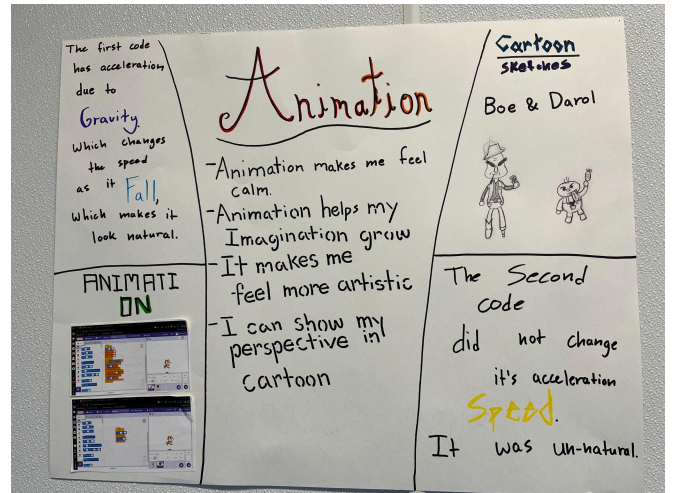 The first code
has acceleration
due to
Gravity
Which changes
the speed
as it Fall,
which makes it
look natural.
ANIMATI
ON
Animation
-Animation makes me feel
calm.
-Animation helps my
Imagination grow
-It makes me
feel more artistic
-I can show my
perspective in
cartoon
Cartoon
Sketches
Boe & Darol
The Second
code
did not change
it's acceleration
Speed.
It was un-natural.